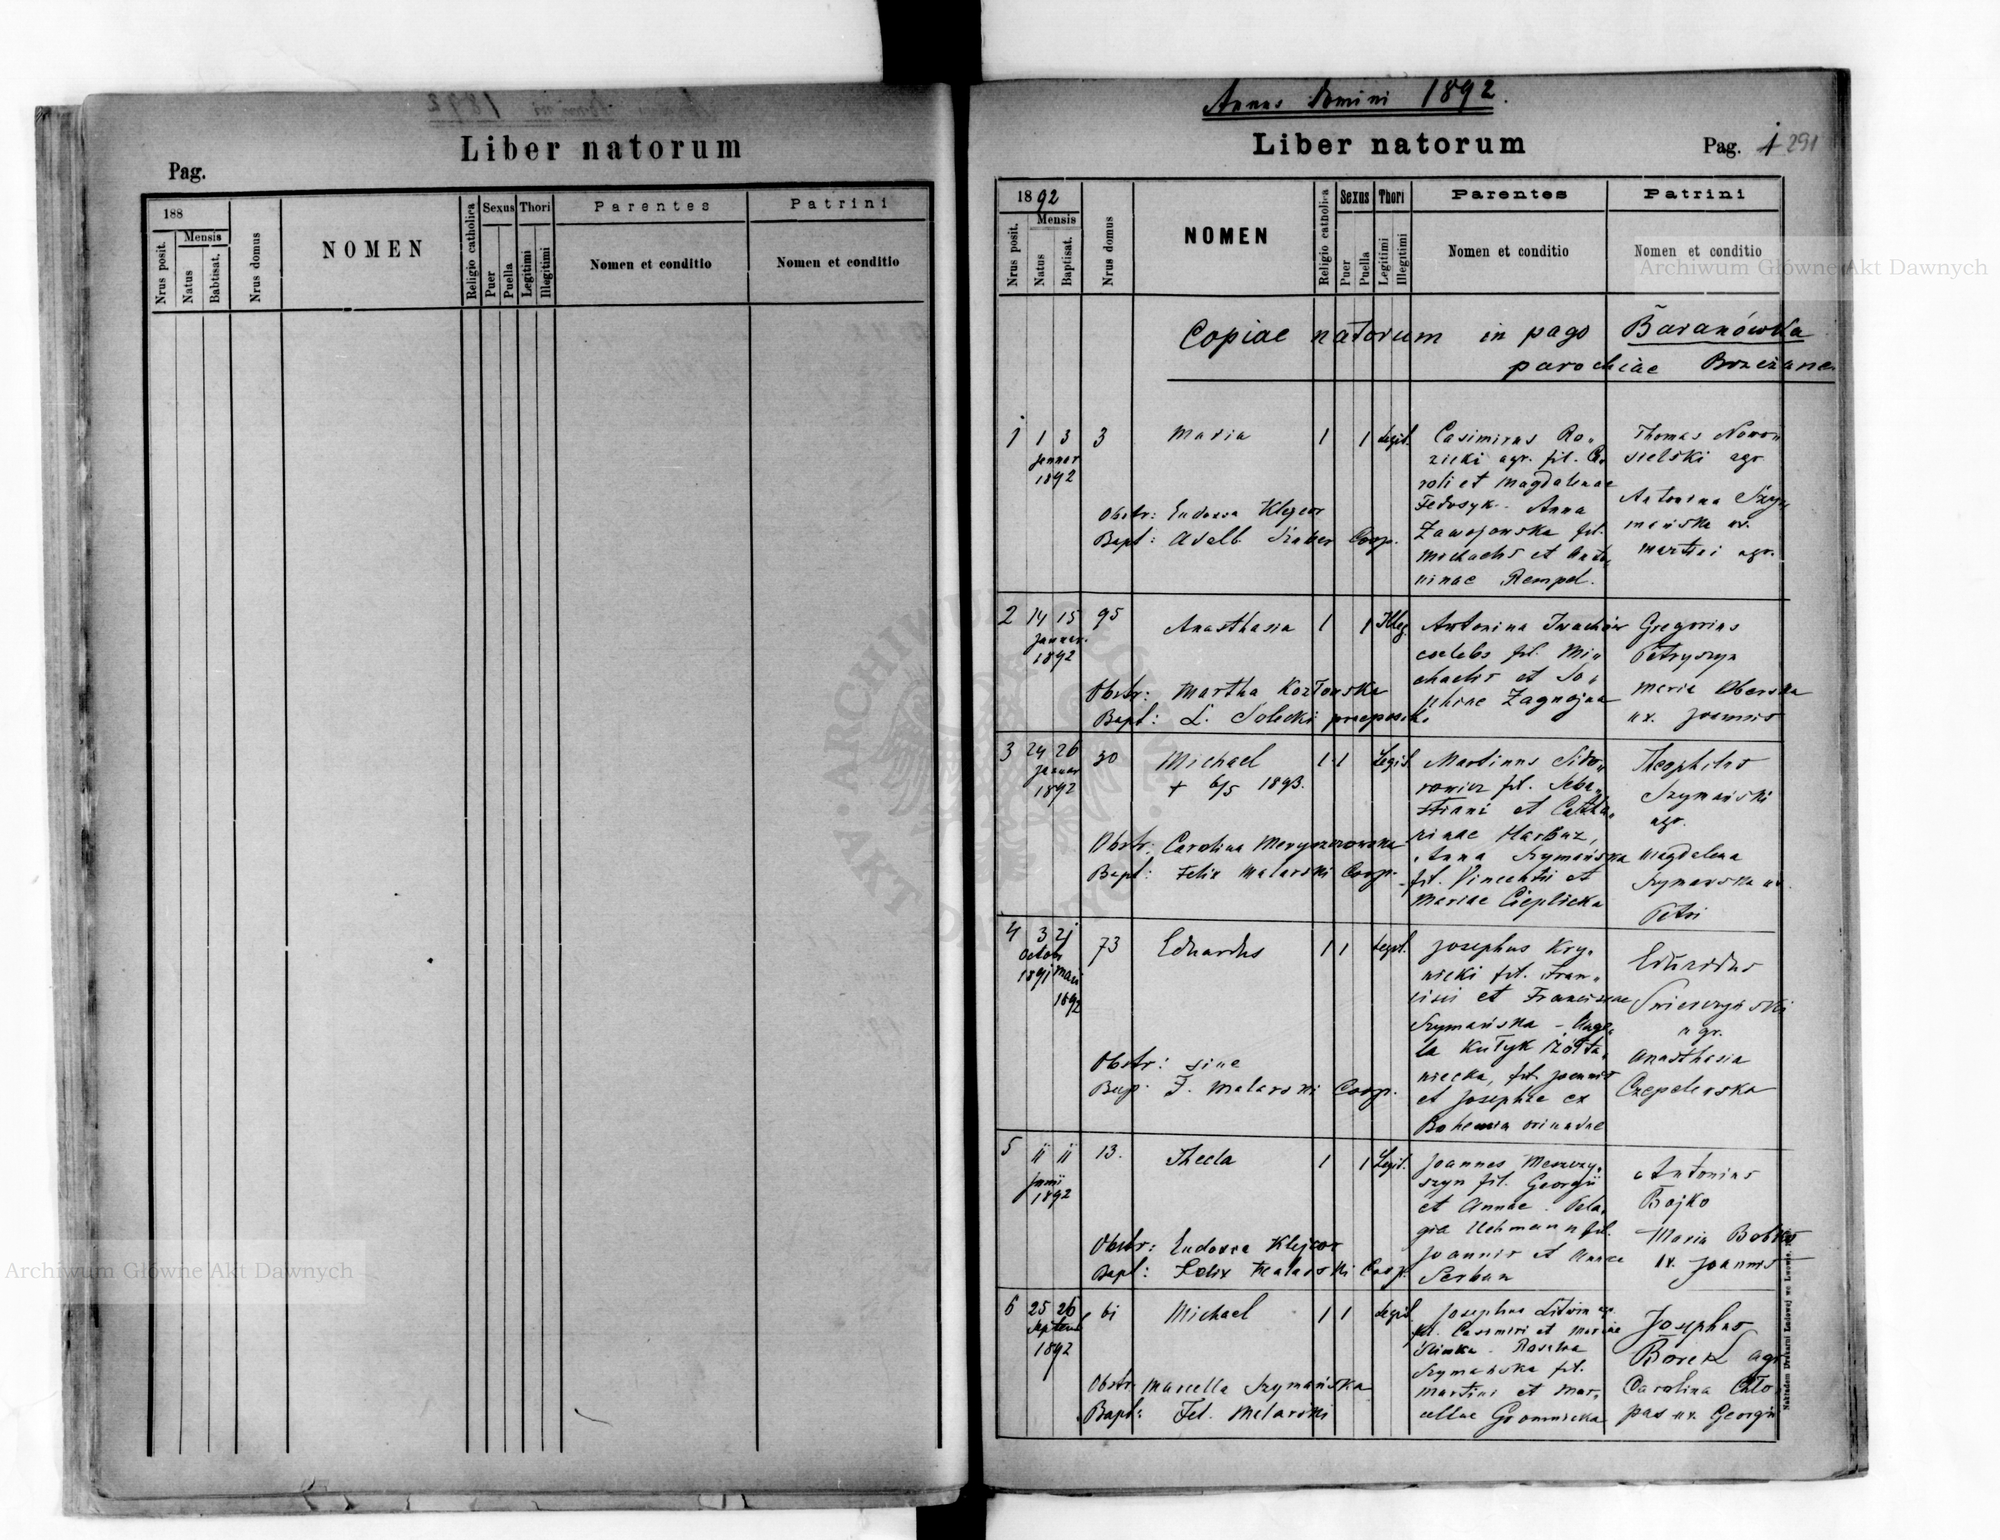 Liber natorum
Pag.
188
Nrus posit.
Mensis
Natus
Babtisat.
Nrus domus
NOMEN
Religio catholica
Sexus
Puer
Puella
Thori
Legitimi
Illegitimi
Parentes
Nomen et conditio
Patrini
Nomen et conditio
Annus Domini 1892.
Liber natorum
Pag. 1 291
1892
Nrus posit.
Mensis
Natus
Baptisat.
Nrus domus
NOMEN
Religio catholica
Sexus
Puer
Puella
Thori
Legitimi
Illegitimi
Parentes
Nomen et conditio
Patrini
Nomen et conditio
Copiae natorum in pago Baranówka
parochiae
1 1 3
Januar
1892
3
Maria
1 1 Legit.
Obstr: Eudoxia
Bapt: Adalb. Coop.
Casimirus Ro„
zicki agr. fil. Ca„
roli et Magdalenae
Fedosyk. Anna
Zawojowska fil.
Michaelis et Anto„
ninae Rempel.
Thomas Nowo„
sielski agr.
Antonina Szy„
mańska ux.
Martini agr.
2 14 15
Januar.
1892
95
Anasthasia
1 1 Illeg.
Obstr: Martha Kozłowska
Bapt: L. Solecki praeposit.
Antonina Iwachów
coelebs fil. Mi„
chaelis et So„
phiae
Gregorius
Petryszyn
Maria
ux. Joannis
3 24 26
Januar
1892
30
Michael
+ 6/5 1893.
1 1 Legit.
Obstr: Carolina
Bapt: Felix Malarski Coop.
Martinus Sido„
rowicz fil. Seba„
stiani et Catha„
rinae Harbuz,
Anna Szymańska
fil. Vincentii et
Mariae Cieplicka
Theophilus
Szymański
agr.
Magdalena
Szymańska ux.
Petri
4 3 21
Octob
1891 Maii
1892
73
Eduardus
1 1 Legit.
Obstr: sine
Bap: F. Malarski Coop.
Josephus Kry„
nicki fil. Fran„
cisci et Franciscae
Szymańska - Ange„
la Kułyk
fil. Joannis
et Josephae ex
Bohemia
Eduardus
agr.
Anasthasia
5 11 11
Junii
1892
13.
Thecla
1 1 Legit.
Obstr: Eudoxia
Bapt: Felix Malarski Coop.
Joannes Meszczy„
szyn fil. Georgii
et Annae. Pela„
gia fil.
Joannis et Annae
Serban
Antonius
Bojko
Maria Bobko
ux. Joannis
6 25 26
Septemb
1892
61
Michael
1 1 Legit
Obstr: Marcella Szymańska
Bapt: Fel. Malarski
Josephus Litwin agr.
fil. Casimiri et Mariae
Szymańska fil.
Martini et Mar„
cellae
Josephus
Borek agr.
Carolina Chło„
pas ux. Georgii
Nakładem Drukarni Ludowej we Lwowie.
Archiwum Główne Akt Dawnych
Archiwum Główne Akt Dawnych